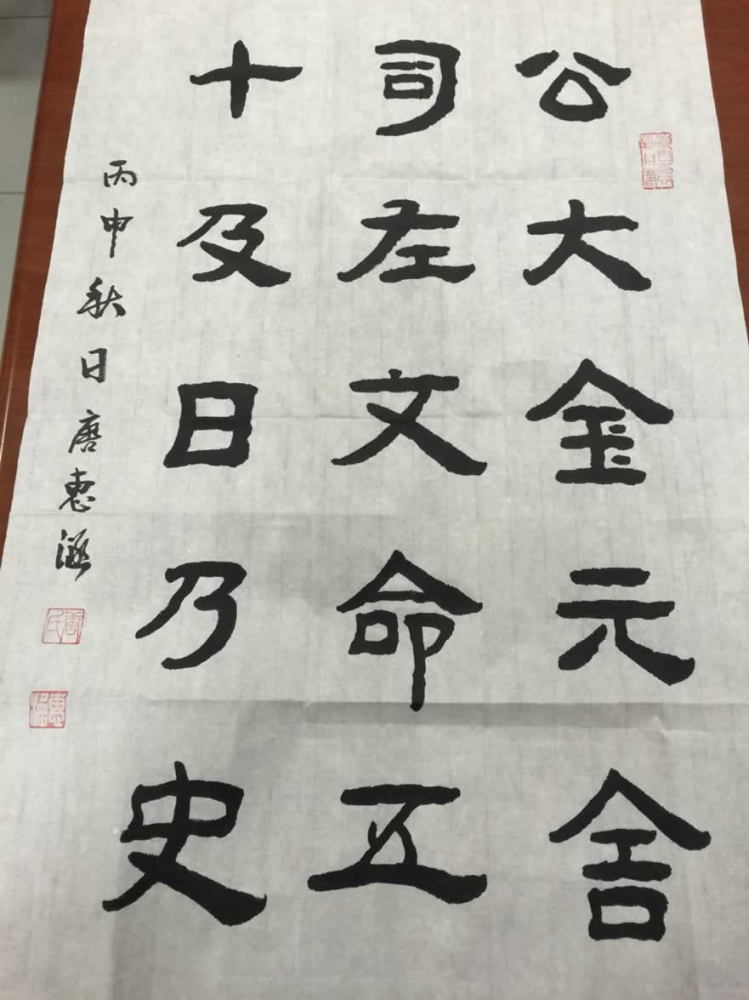 公大金元舍
司左文命五
十及日乃史
丙申秋日唐惠涵
唐氏